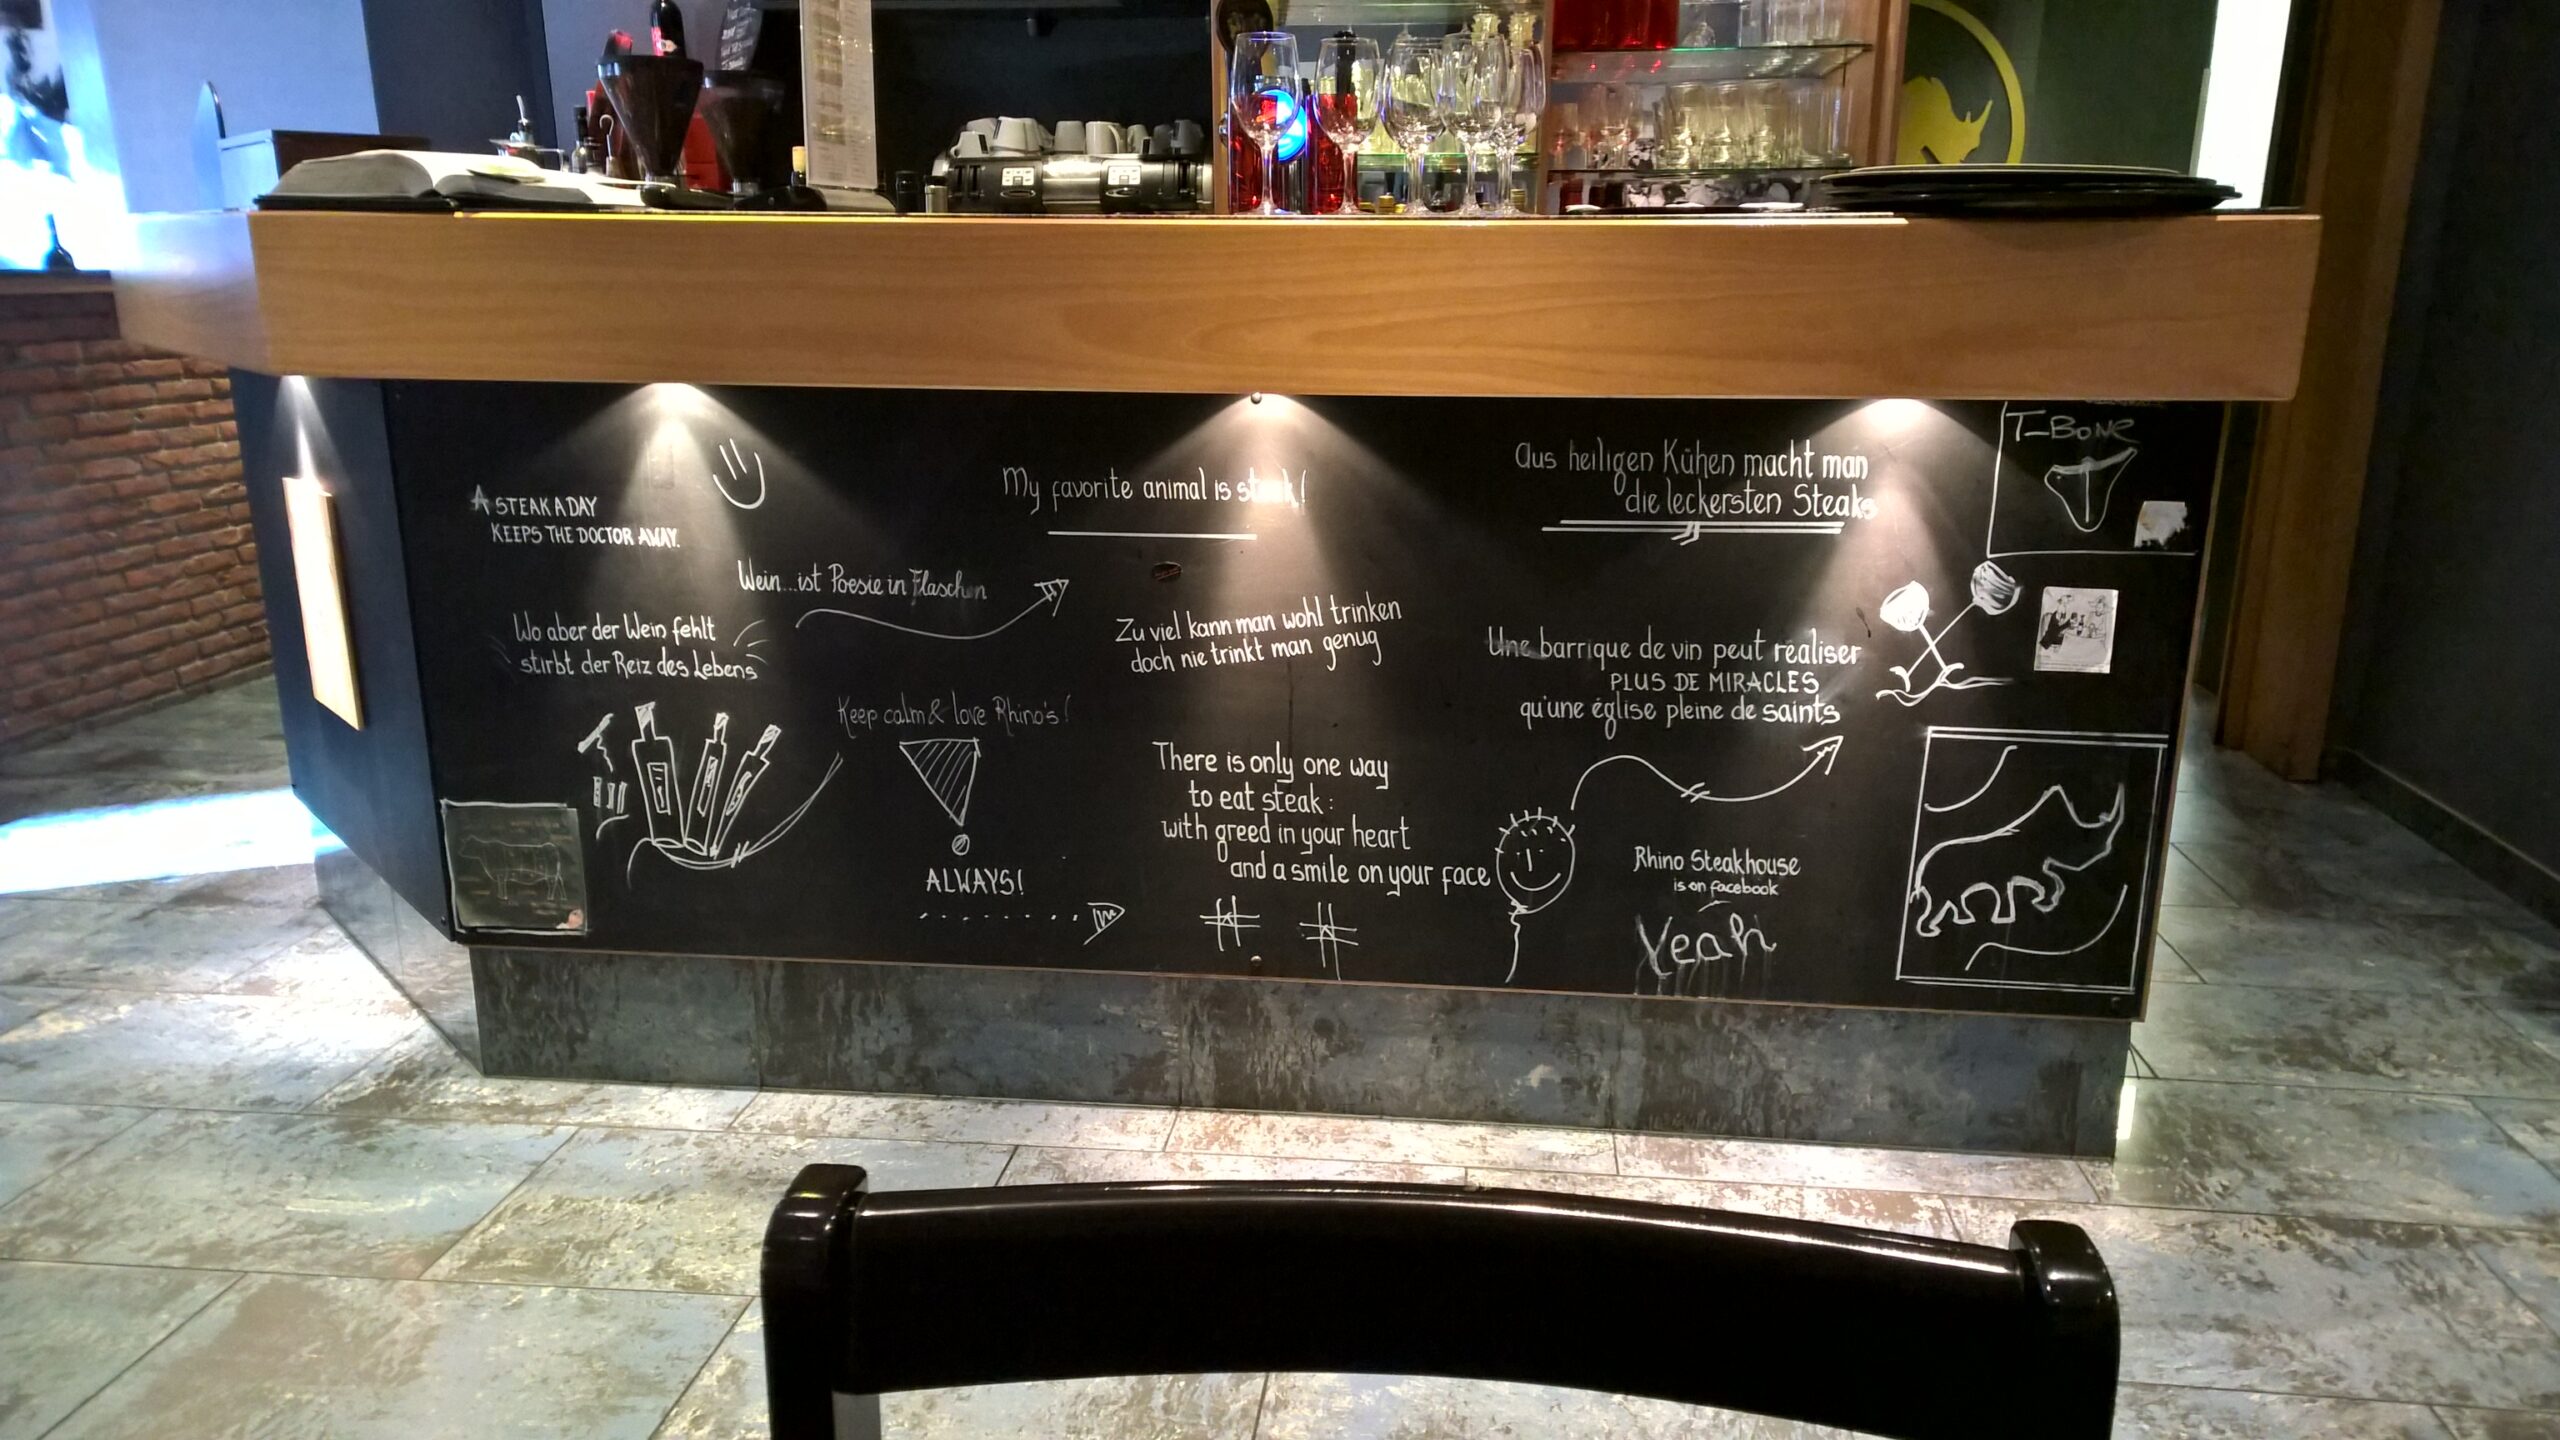 A STEAK A DAY
KEEPS THE DOCTOR AWAY.
Wein...ist Poesie in Flaschen
Wo aber der Wein fehlt
stirbt der Reiz des Lebens
Keep calm & love Rhino's!
ALWAYS!
My favorite animal is steak!
Zu viel kann man wohl trinken
doch nie trinkt man genug
There is only one way
to eat steak:
with greed in your heart
and a smile on your face
Aus heiligen Kühen macht man
die leckersten Steaks
Une barrique de vin peut réaliser
PLUS DE MIRACLES
qu'une église pleine de saints
Rhino Steakhouse
is on facebook
Yeah
T-BONE